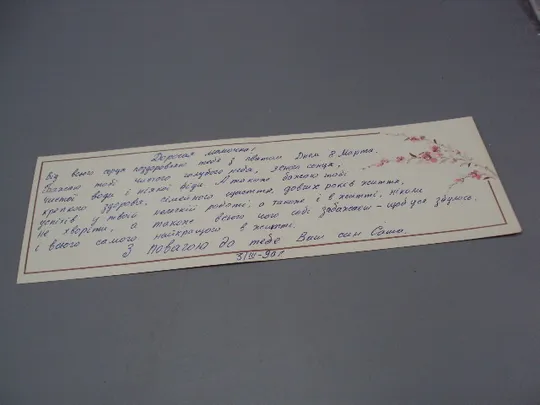 Дорогая мамочка!
Від всього серця поздоровляю тебе з святом Днем 8 Марта.
Бажаю тобі чистого голубого неба, ясного сонця,
чистої води і ніякої біди. А також бажаю тобі
крепкого здоров'я, сімейного щастя, довгих років життя,
успіхів у твоїй нелегкій роботі, а також і в житті, ніколи
не хворіти, а також всього чого собі забажаєш - щоб усе збулося.
і всього самого найкращого в житті.
З повагою до тебе Ваш син Саша.
8/III-90г